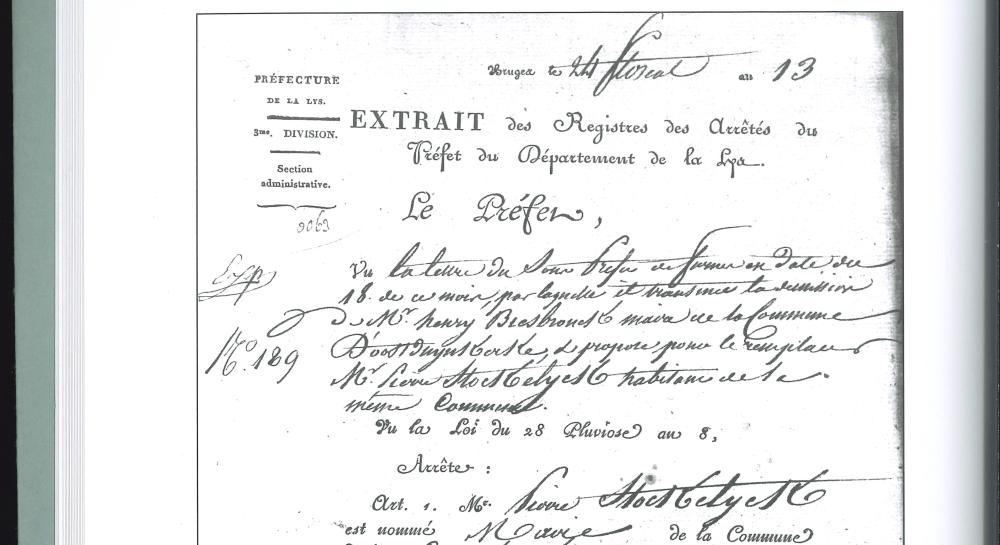 Bruges le 24 floreal an 13
PRÉFECTURE
DE LA LYS.
3me. DIVISION.
Section
administrative.
9063
EXTRAIT des Registres des Arrêtés du
Préfet du Département de la Lys.
Le Préfet,
Vu la lettre du Sous Préfet de furnes en date du
18 de ce mois, par laquelle il transmet la demission
de Mr. henry Bresbronck maire de la Commune
No. 189
D'oostduynkerke, & propose pour le remplacer
Mr. Pierre Stockelynck habitant de la
même Commune.
Vu la Loi du 28 Pluviose an 8,
Arrête :
Art. 1. Mr. Pierre Stockelynck
est nommé Maire de la Commune